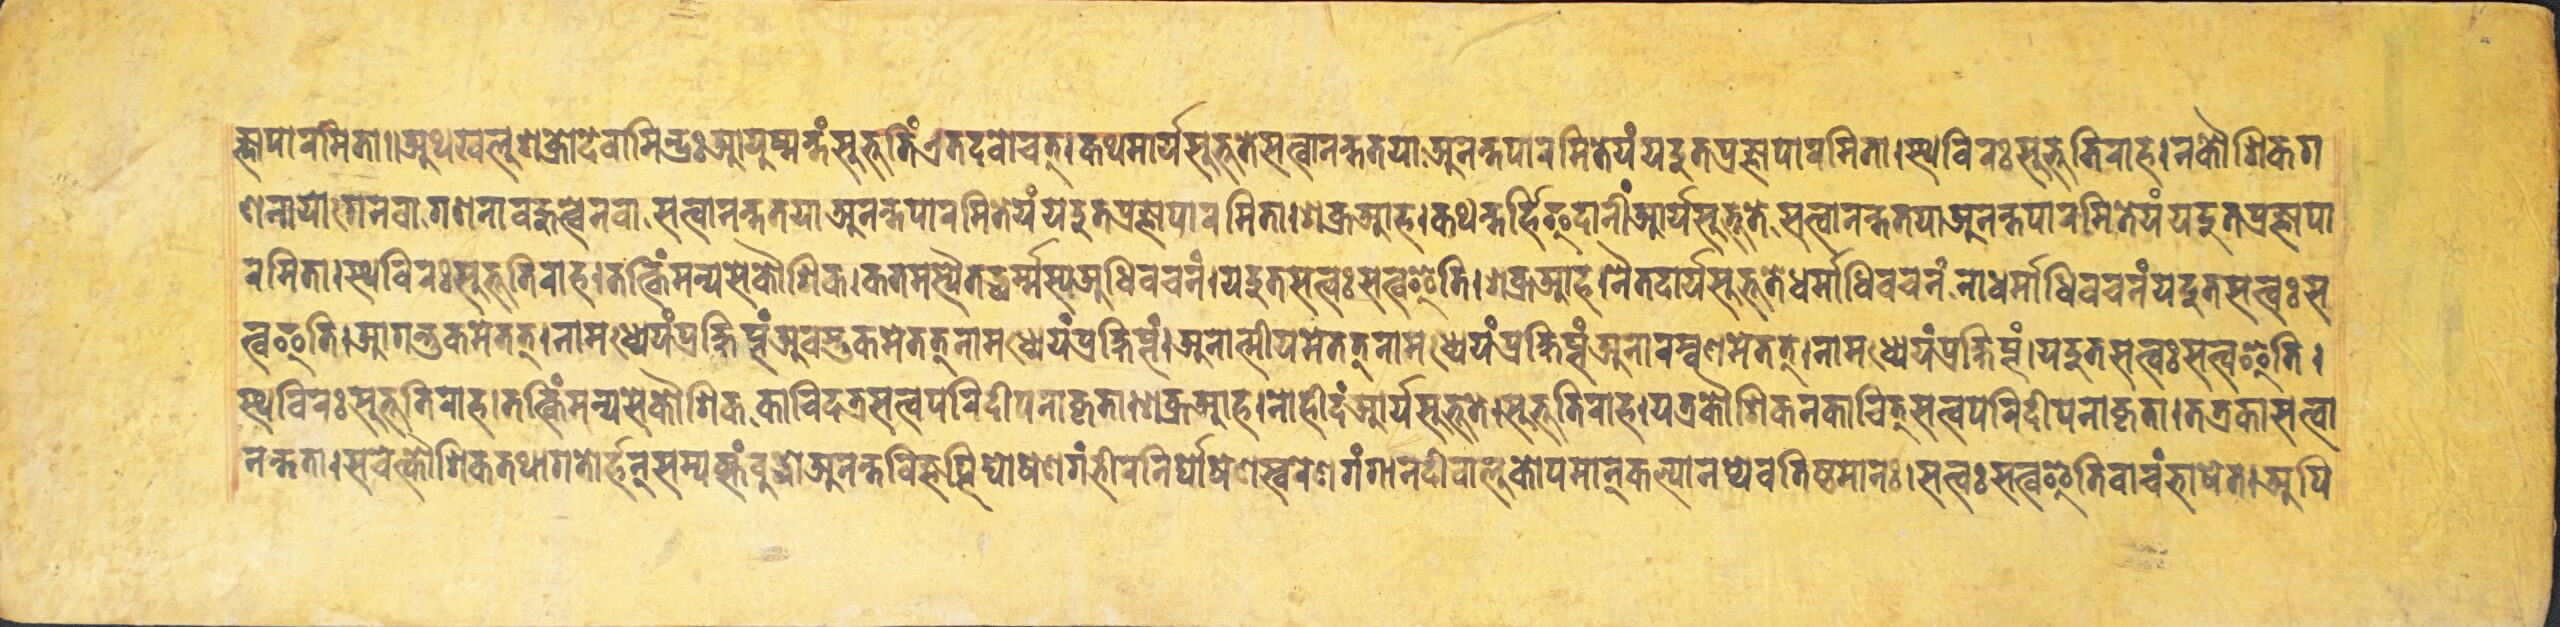 ज्ञापारमिता॥अथखलुशक्रोदेवामिन्द्रःआयुष्मन्तंसुभूतिंएतदवोचत्।कथमार्यसुभूतेसत्वानन्ततयाअनन्तपारमितेयंयदुतप्रज्ञापारमिता।स्थविरःसुभूतिराह।नकौशिकग
णनायोगेनवागणनाबहुत्वेनवासत्वानन्ततयाअनन्तपारमितेयंयदुतप्रज्ञापारमिता।शक्रआह।कथन्तर्हिइदानींआर्यसुभूतेसत्वानन्ततयाअनन्तपारमितेयंयदुतप्रज्ञापा
रमिता।स्थविरःसुभूतिराह।तत्किंमन्यसेकौशिक।कतमस्यैतद्धर्म्मस्यअधिवचनं।यदुतसत्वःसत्वइति।शक्रआह।नैतदार्यसुभूतेधर्माधिवचनंनाधर्माधिवचनंयदुतसत्वःस
त्वइति।आगन्तुकमेतत्।नामध्येयंप्रक्षिप्तंअवस्तुकमेतत्नामध्येयंप्रक्षिप्तं।अनात्मीयमेतत्नामध्येयंप्रक्षिप्तंअनारम्बणमेतत्।नामध्येयंप्रक्षिप्तं।यदुतसत्वःसत्वइति।
स्थविरःसुभूतिराह।तत्किंमन्यसेकौशिककाचिदत्रसत्वपरिदीपनाकृता।शक्रआह।नोहीदंआर्यसुभूते।सुभूतिराह।यत्रकौशिकनकाचित्सत्वपरिदीपनाकृता।तत्रकासत्वा
नन्तता।सचेत्कौशिकतथागतोर्हन्सम्यक्संबुद्धोअनन्तविज्ञप्तिघोषेणगंभीरनिर्घोषेणस्वरेणगंगानदीवालुकोपमान्कल्पानप्येवतिष्ठमानः।सत्वःसत्वइतिवाचंभाषेत।अपि